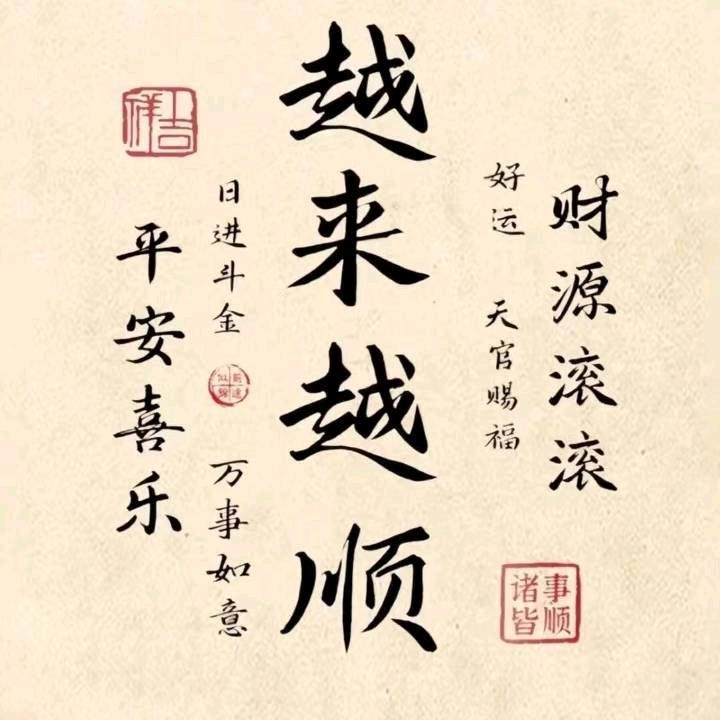 财源滚滚
好运 天官赐福
越来越顺
日进斗金 万事如意
平安喜乐
上吉祥
诸事皆顺
前途似锦